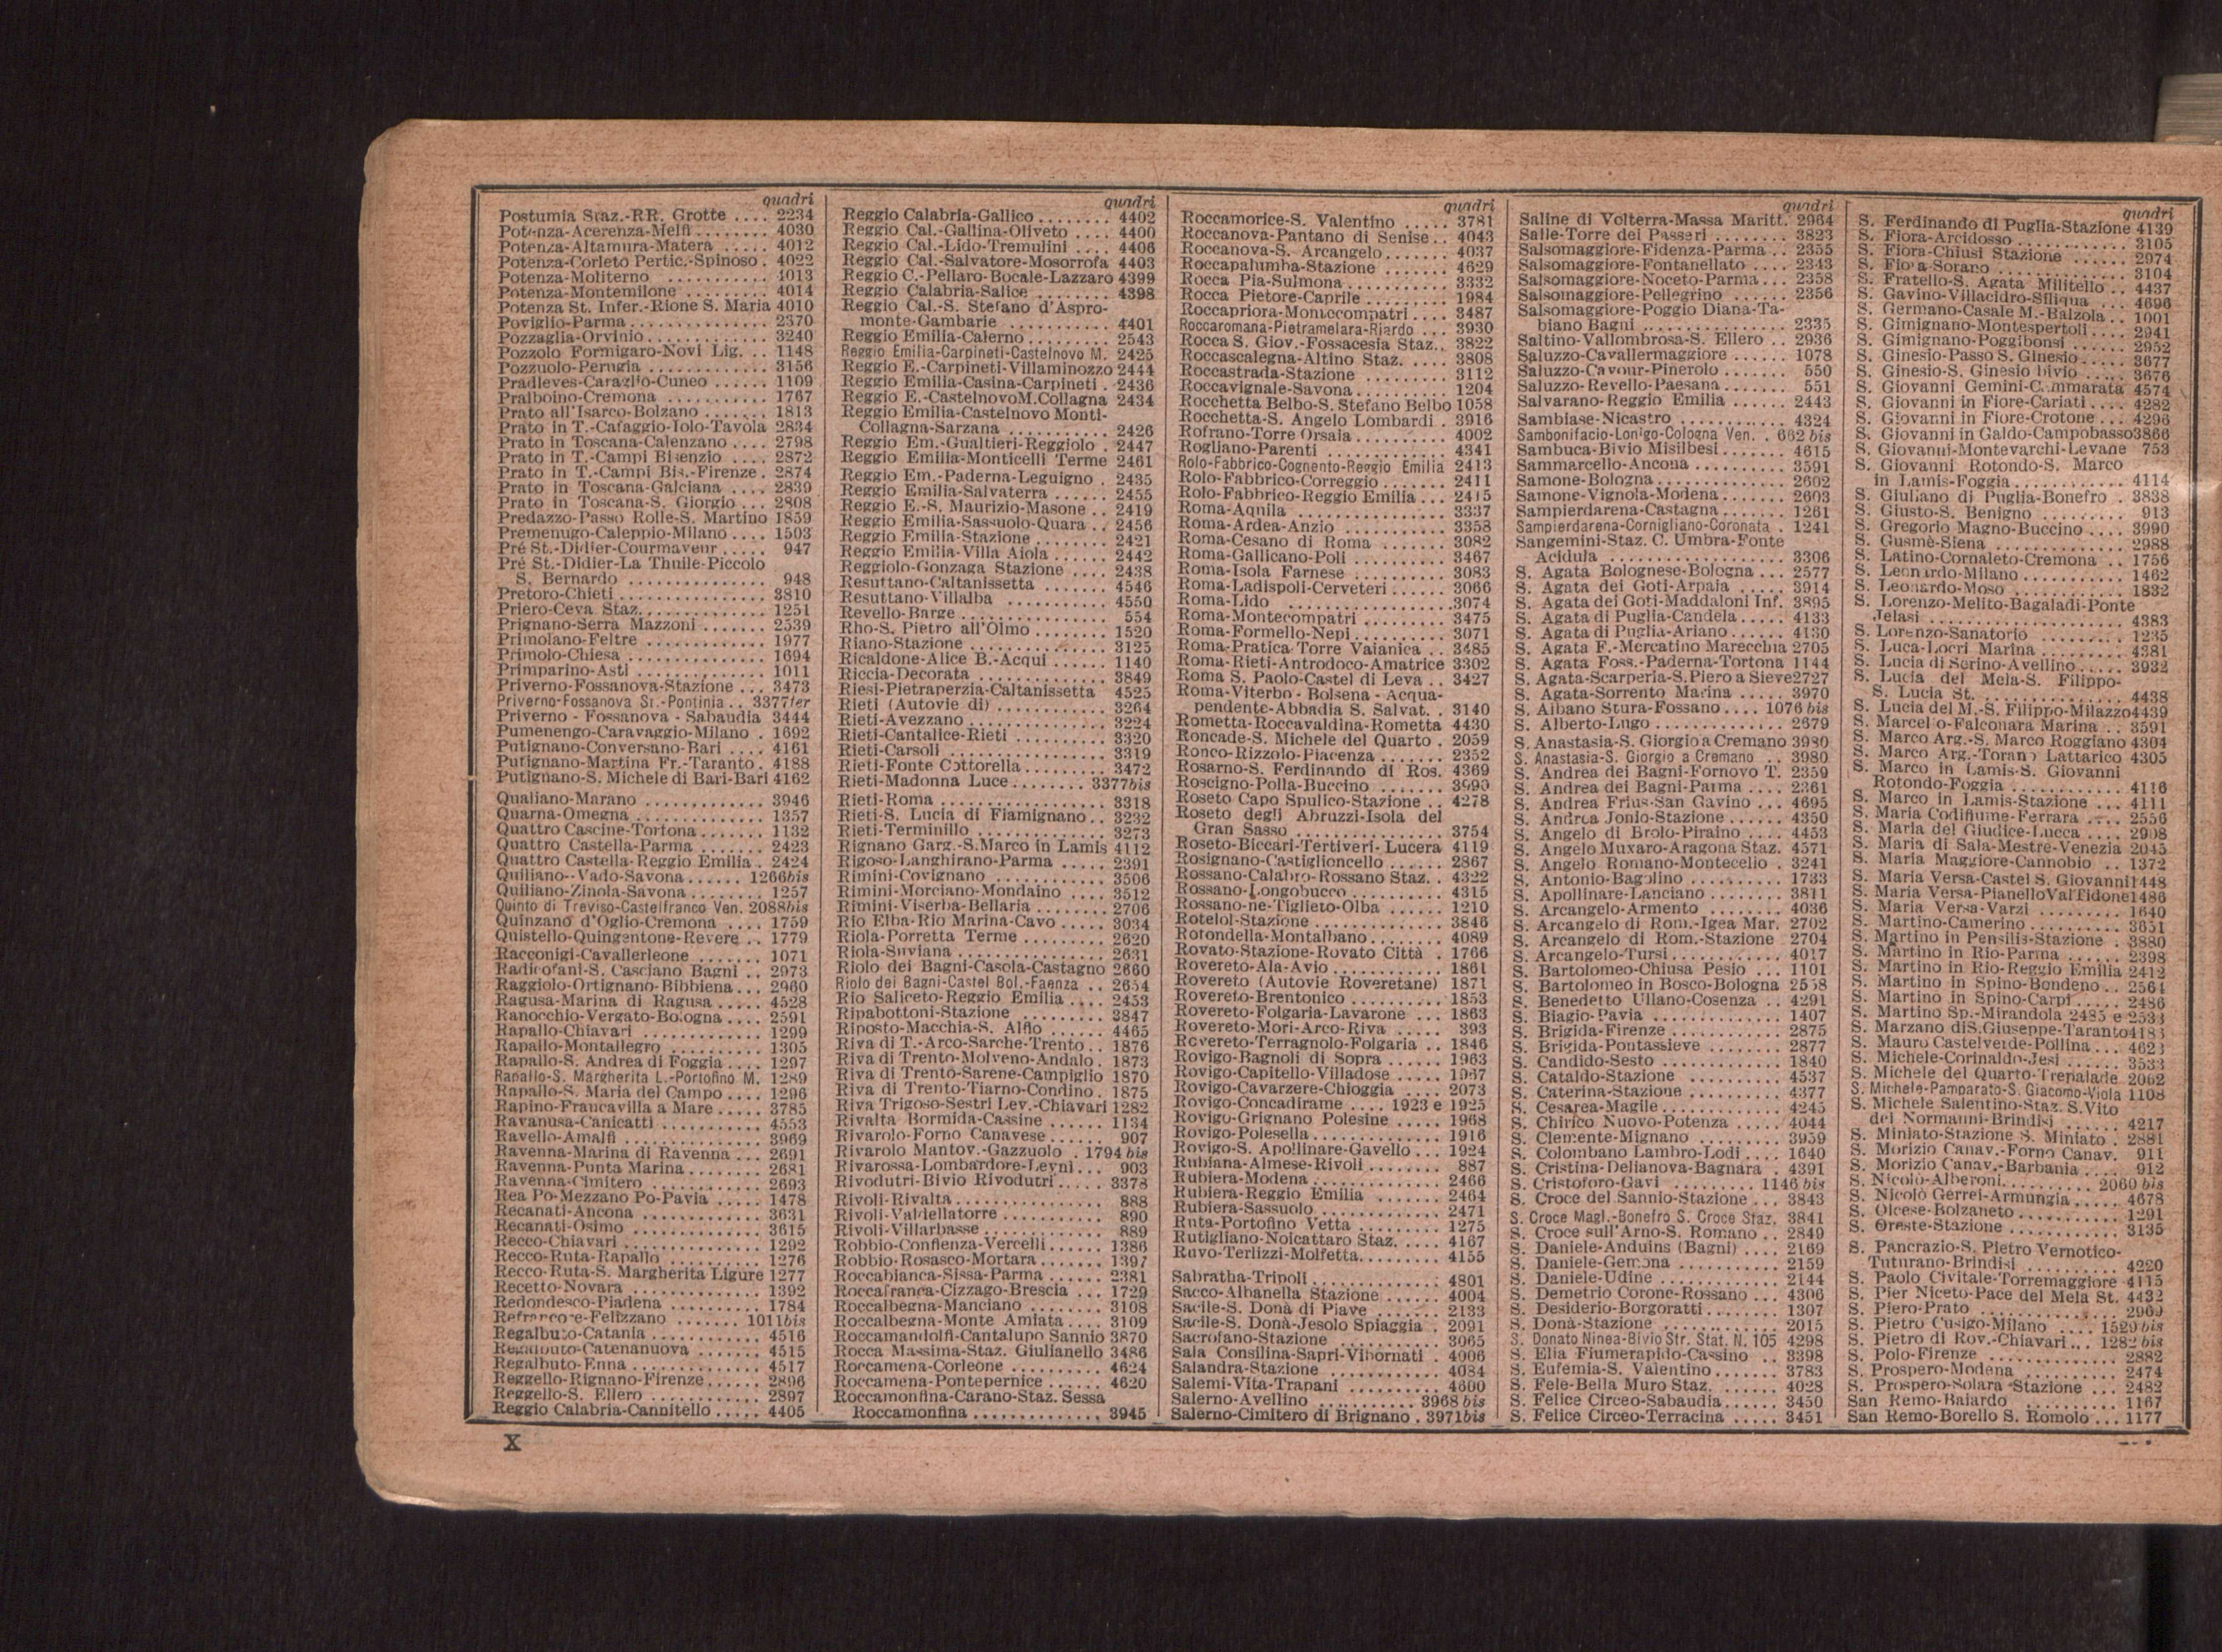 quadri
Postumia Staz.-RR. Grotte .... 2234
Potenza-Acerenza-Melfi ........ 4030
Potenza-Altamura-Matera ..... 4012
Potenza-Corleto Pertic.-Spinoso . 4022
Potenza-Moliterno ............ 4013
Potenza-Montemilone ......... 4014
Potenza St. Infer.-Rione S. Maria 4010
Poviglio-Parma ............... 2370
Pozzaglia-Orvinio ............. 3240
Pozzolo Formigaro-Novi Lig. .. 1148
Pozzuolo-Perugia ............. 3156
Pradleves-Caraglio-Cuneo ...... 1109
Pralboino-Cremona ........... 1767
Prato all'Isarco-Bolzano ....... 1813
Prato in T.-Cafaggio-Iolo-Tavola 2834
Prato in Toscana-Calenzano .... 2798
Prato in T.-Campi Bisenzio .... 2872
Prato in T.-Campi Bis.-Firenze . 2874
Prato in Toscana-Galciana .... 2839
Prato in Toscana-S. Giorgio ... 2808
Predazzo-Passo Rolle-S. Martino 1859
Premenugo-Caleppio-Milano .... 1503
Pré St.-Didier-Courmayeur ..... 947
Pré St.-Didier-La Thuile-Piccolo
S. Bernardo ............... 948
Pretoro-Chieti ................ 3810
Priero-Ceva Staz. ............. 1251
Prignano-Serra Mazzoni ....... 2539
Primolano-Feltre ............. 1977
Primolo-Chiesa ............... 1694
Primparino-Asti .............. 1011
Priverno-Fossanova-Stazione ... 3473
Priverno-Fossanova St.-Pontinia .. 3377ter
Priverno - Fossanova - Sabaudia 3444
Pumenengo-Caravaggio-Milano . 1692
Putignano-Conversano-Bari .... 4161
Putignano-Martina Fr.-Taranto . 4188
Putignano-S. Michele di Bari-Bari 4162
Qualiano-Marano ............. 3946
Quarna-Omegna .............. 1357
Quattro Cascine-Tortona ....... 1132
Quattro Castella-Parma ....... 2423
Quattro Castella-Reggio Emilia . 2424
Quiliano--Vado-Savona ...... 1266bis
Quiliano-Zinola-Savona ........ 1257
Quinto di Treviso-Castelfranco Ven. 2088bis
Quinzano d'Oglio-Cremona .... 1759
Quistello-Quingentone-Revere .. 1779
Racconigi-Cavallerleone ....... 1071
Radicofani-S. Casciano Bagni .. 2973
Raggiolo-Ortignano-Bibbiena ... 2960
Ragusa-Marina di Ragusa ..... 4528
Ranocchio-Vergato-Bologna .... 2591
Rapallo-Chiavari ............. 1299
Rapallo-Montallegro .......... 1305
Rapallo-S. Andrea di Foggia .... 1297
Rapallo-S. Margherita L.-Portofino M. 1289
Rapallo-S. Maria del Campo .... 1296
Rapino-Francavilla a Mare ..... 3785
Ravanusa-Canicattì ............ 4553
Ravello-Amalfi ............... 3969
Ravenna-Marina di Ravenna ... 2691
Ravenna-Punta Marina ........ 2681
Ravenna-Cimitero ............ 2693
Rea Po-Mezzano Po-Pavia ..... 1478
Recanati-Ancona ............. 3631
Recanati-Osimo .............. 3615
Recco-Chiavari ............... 1292
Recco-Ruta-Rapallo .......... 1276
Recco-Ruta-S. Margherita Ligure 1277
Recetto-Novara .............. 1392
Redondesco-Piadena .......... 1784
Refrancore-Felizzano ....... 1011bis
Regalbuto-Catania ............ 4516
Regalbuto-Catenanuova ....... 4515
Regalbuto-Enna .............. 4517
Reggello-Rignano-Firenze ...... 2896
Reggello-S. Ellero ............ 2897
Reggio Calabria-Cannitello ..... 4405
quadri
Reggio Calabria-Gallico ........ 4402
Reggio Cal.-Gallina-Oliveto .... 4400
Reggio Cal.-Lido-Tremulini ... 4406
Reggio Cal.-Salvatore-Mosorrofa 4403
Reggio C.-Pellaro-Bocale-Lazzaro 4399
Reggio Calabria-Salice ........ 4398
Reggio Cal.-S. Stefano d'Aspro-
monte-Gambarie .......... 4401
Reggio Emilia-Calerno ........ 2543
Reggio Emilia-Carpineti-Castelnovo M. 2425
Reggio E.-Carpineti-Villaminozzo 2444
Reggio Emilia-Casina-Carpineti . 2436
Reggio E.-CastelnovoM.Collagna 2434
Reggio Emilia-Castelnovo Monti-
Collagna-Sarzana ........... 2426
Reggio Em.-Gualtieri-Reggiolo . 2447
Reggio Emilia-Monticelli Terme 2461
Reggio Em.-Paderna-Leguigno . 2435
Reggio Emilia-Salvaterra ...... 2455
Reggio E.-S. Maurizio-Masone .. 2419
Reggio Emilia-Sassuolo-Quara .. 2456
Reggio Emilia-Stazione ........ 2421
Reggio Emilia-Villa Aiola ...... 2442
Reggiolo-Gonzaga Stazione .... 2438
Resuttano-Caltanissetta ....... 4546
Resuttano-Villalba .......... 4550
Revello-Barge ................ 554
Rho-S. Pietro all'Olmo ........ 1520
Riano-Stazione ............... 3125
Ricaldone-Alice B.-Acqui ...... 1140
Riccia-Decorata .............. 3849
Riesi-Pietraperzia-Caltanissetta 4525
Rieti (Autovie di) ............ 3264
Rieti-Avezzano .............. 3224
Rieti-Cantalice-Rieti .......... 3320
Rieti-Carsoli ................ 3319
Rieti-Fonte Cottorella ......... 3472
Rieti-Madonna Luce ........ 3377bis
Rieti-Roma .................. 3318
Rieti-S. Lucia di Fiamignano .. 3232
Rieti-Terminillo .............. 3273
Rignano Garg.-S.Marco in Lamis 4112
Rigoso-Langhirano-Parma ..... 2391
Rimini-Covignano ............ 3506
Rimini-Morciano-Mondaino .... 3512
Rimini-Viserba-Bellaria ........ 2706
Rio Elba-Rio Marina-Cavo ..... 3034
Riola-Porretta Terme ......... 2620
Riola-Suviana ................ 2631
Riolo dei Bagni-Casola-Castagno 2660
Riolo dei Bagni-Castel Bol.-Faenza .. 2654
Rio Saliceto-Reggio Emilia .... 2453
Ripabottoni-Stazione .......... 3847
Riposto-Macchia-S. Alfio ...... 4465
Riva di T.-Arco-Sarche-Trento .. 1876
Riva di Trento-Molveno-Andalo . 1873
Riva di Trento-Sarene-Campiglio 1870
Riva di Trento-Tiarno-Condino . 1875
Riva Trigoso-Sestri Lev.-Chiavari 1282
Rivalta Bormida-Cassine ...... 1134
Rivarolo-Forno Canavese ...... 907
Rivarolo Mantov.-Gazzuolo . 1794 bis
Rivarossa-Lombardore-Leynì ... 903
Rivodutri-Bivio Rivodutri ..... 3378
Rivoli-Rivalta ................ 888
Rivoli-Valdellatorre ........... 890
Rivoli-Villarbasse ............. 889
Robbio-Confienza-Vercelli ...... 1386
Robbio-Rosasco-Mortara ....... 1397
Roccabianca-Sissa-Parma ...... 2381
Roccafranca-Cizzago-Brescia ... 1729
Roccalbegna-Manciano ........ 3108
Roccalbegna-Monte Amiata .... 3109
Roccamandolfi-Cantalupo Sannio 3870
Rocca Massima-Staz. Giulianello 3486
Roccamena-Corleone ......... 4624
Roccamena-Pontepernice ...... 4620
Roccamonfina-Carano-Staz. Sessa
Roccamonfina ............... 3945
quadri
Roccamorice-S. Valentino ..... 3781
Roccanova-Pantano di Senise .. 4043
Roccanova-S. Arcangelo ....... 4037
Roccapalumba-Stazione ....... 4629
Rocca Pia-Sulmona ........... 3332
Rocca Pietore-Caprile ......... 1984
Roccapriora-Montecompatri .... 3487
Roccaromana-Pietramelara-Riardo ... 3930
Rocca S. Giov.-Fossacesia Staz. . 3822
Roccascalegna-Altino Staz. .... 3808
Roccastrada-Stazione ......... 3112
Roccavignale-Savona .......... 1204
Rocchetta Belbo-S. Stefano Belbo 1058
Rocchetta-S. Angelo Lombardi . 3916
Rofrano-Torre Orsaia .......... 4002
Rogliano-Parenti ............. 4341
Rolo-Fabbrico-Cognento-Reggio Emilia 2413
Rolo-Fabbrico-Correggio ....... 2411
Rolo-Fabbrico-Reggio Emilia ... 2415
Roma-Aquila ................. 3337
Roma-Ardea-Anzio ........... 3358
Roma-Cesano di Roma ....... 3082
Roma-Gallicano-Poli .......... 3467
Roma-Isola Farnese .......... 3083
Roma-Ladispoli-Cerveteri ...... 3066
Roma-Lido .................. 3074
Roma-Montecompatri ......... 3475
Roma-Formello-Nepi .......... 3071
Roma-Pratica Torre Vaianica .. 3485
Roma-Rieti-Antrodoco-Amatrice 3302
Roma S. Paolo-Castel di Leva .. 3427
Roma-Viterbo - Bolsena - Acqua-
pendente-Abbadia S. Salvat. . 3140
Rometta-Roccavaldina-Rometta 4430
Roncade-S. Michele del Quarto . 2059
Ronco-Rizzolo-Piacenza ....... 2352
Rosarno-S. Ferdinando di Ros. 4369
Roscigno-Polla-Buccino ........ 3990
Roseto Capo Spulico-Stazione .. 4278
Roseto degli Abruzzi-Isola del
Gran Sasso ................ 3754
Roseto-Biccari-Tertiveri-Lucera 4119
Rosignano-Castiglioncello ...... 2867
Rossano-Calabro-Rossano Staz. . 4322
Rossano-Longobucco .......... 4315
Rossano-ne-Tiglieto-Olba ...... 1210
Rotelol-Stazione .............. 3846
Rotondella-Montalbano ........ 4089
Rovato-Stazione-Rovato Città . 1766
Rovereto-Ala-Avio ............ 1861
Rovereto (Autovie Roveretane) 1871
Rovereto-Brentonico .......... 1853
Rovereto-Folgaria-Lavarone ... 1863
Rovereto-Mori-Arco-Riva ..... 393
Rovereto-Terragnolo-Folgaria .. 1846
Rovigo-Bagnoli di Sopra ...... 1963
Rovigo-Capitello-Villadose ..... 1967
Rovigo-Cavarzere-Chioggia .... 2073
Rovigo-Concadirame .... 1923 e 1925
Rovigo-Grignano Polesine ..... 1968
Rovigo-Polesella .............. 1916
Rovigo-S. Apollinare-Gavello ... 1924
Rubiana-Almese-Rivoli ........ 887
Rubiera-Modena ............. 2466
Rubiera-Reggio Emilia ....... 2464
Rubiera-Sassuolo ............. 2471
Ruta-Portofino Vetta ......... 1275
Rutigliano-Noicattaro Staz. .... 4167
Ruvo-Terlizzi-Molfetta ........ 4155
Sabratha-Tripoli .............. 4801
Sacco-Albanella Stazione ...... 4004
Sacile-S. Donà di Piave ....... 2133
Sacile-S. Donà-Jesolo Spiaggia . 2091
Sacrofano-Stazione ........... 3065
Sala Consilina-Sapri-Vibornati . 4006
Salandra-Stazione ............ 4084
Salemi-Vita-Trapani ......... 4600
Salerno-Avellino ........... 3968 bis
Salerno-Cimitero di Brignano . 3971bis
quadri
Saline di Volterra-Massa Maritt. 2964
Salle-Torre dei Passeri ........ 3823
Salsomaggiore-Fidenza-Parma .. 2355
Salsomaggiore-Fontanellato .... 2343
Salsomaggiore-Noceto-Parma ... 2358
Salsomaggiore-Pellegrino ...... 2356
Salsomaggiore-Poggio Diana-Ta-
biano Bagni ................ 2335
Saltino-Vallombrosa-S. Ellero .. 2936
Saluzzo-Cavallermaggiore ...... 1078
Saluzzo-Cavour-Pinerolo ....... 550
Saluzzo-Revello-Paesana ....... 551
Salvarano-Reggio Emilia ...... 2443
Sambiase-Nicastro ............ 4324
Sambonifacio-Lonigo-Cologna Ven. . 662 bis
Sambuca-Bivio Misilbesi ....... 4615
Sammarcello-Ancona .......... 3591
Samone-Bologna .............. 2602
Samone-Vignola-Modena ....... 2603
Sampierdarena-Castagna ...... 1261
Sampierdarena-Cornigliano-Coronata . 1241
Sangemini-Staz. C. Umbra-Fonte
Acidula .................... 3306
S. Agata Bolognese-Bologna ... 2577
S. Agata dei Goti-Arpaia ..... 3914
S. Agata dei Goti-Maddaloni Inf. 3895
S. Agata di Puglia-Candela .... 4133
S. Agata di Puglia-Ariano ...... 4130
S. Agata F.-Mercatino Marecchia 2705
S. Agata Foss.-Paderna-Tortona 1144
S. Agata-Scarperia-S.Piero a Sieve2727
S. Agata-Sorrento Marina ..... 3970
S. Albano Stura-Fossano .... 1076 bis
S. Alberto-Lugo .............. 2679
S. Anastasia-S. Giorgio a Cremano 3980
S. Anastasia-S. Giorgio a Cremano .. 3980
S. Andrea dei Bagni-Fornovo T. 2359
S. Andrea dei Bagni-Parma .... 2361
S. Andrea Frius-San Gavino ... 4695
S. Andrea Jonio-Stazione ...... 4350
S. Angelo di Brolo-Piraino .... 4453
S. Angelo Muxaro-Aragona Staz. 4571
S. Angelo Romano-Montecelio . 3241
S. Antonio-Bagolino .......... 1733
S. Apollinare-Lanciano ........ 3811
S. Arcangelo-Armento ........ 4036
S. Arcangelo di Rom.-Igea Mar. 2702
S. Arcangelo di Rom.-Stazione 2704
S. Arcangelo-Tursi ............ 4017
S. Bartolomeo-Chiusa Pesio ... 1101
S. Bartolomeo in Bosco-Bologna 2558
S. Benedetto Ullano-Cosenza .. 4291
S. Biagio-Pavia .............. 1407
S. Brigida-Firenze ............ 2875
S. Brigida-Pontassieve ........ 2877
S. Candido-Sesto ............. 1840
S. Cataldo-Stazione .......... 4537
S. Caterina-Stazione .......... 4377
S. Cesarea-Magile ............ 4245
S. Chirico Nuovo-Potenza ..... 4044
S. Clemente-Mignano ......... 3959
S. Colombano Lambro-Lodi .... 1640
S. Cristina-Delianova-Bagnara . 4391
S. Cristoforo-Gavi ......... 1146 bis
S. Croce del Sannio-Stazione ... 3843
S. Croce Magl.-Bonefro S. Croce Staz. 3841
S. Croce sull'Arno-S. Romano .. 2849
S. Daniele-Anduins (Bagni) .... 2169
S. Daniele-Gemona ........... 2159
S. Daniele-Udine ............. 2144
S. Demetrio Corone-Rossano ... 4306
S. Desiderio-Borgoratti ........ 1307
S. Donà-Stazione ............. 2015
S. Donato Ninea-Bivio Str. Stat. N. 105 4298
S. Elia Fiumerapido-Cassino .. 3398
S. Eufemia-S. Valentino ....... 3783
S. Fele-Bella Muro Staz. ...... 4028
S. Felice Circeo-Sabaudia ...... 3450
S. Felice Circeo-Terracina ..... 3451
quadri
S. Ferdinando di Puglia-Stazione 4139
S. Fiora-Arcidosso ............ 3105
S. Fiora-Chiusi Stazione ...... 2974
S. Fiora-Sorano .............. 3104
S. Fratello-S. Agata Militello .. 4437
S. Gavino-Villacidro-Siliqua ... 4696
S. Germano-Casale M.-Balzola .. 1001
S. Gimignano-Montespertoli .... 2941
S. Gimignano-Poggibonsi ...... 2952
S. Ginesio-Passo S. Ginesio .... 3677
S. Ginesio-S. Ginesio bivio ..... 3676
S. Giovanni Gemini-Cammarata 4574
S. Giovanni in Fiore-Cariati .... 4282
S. Giovanni in Fiore-Crotone ... 4296
S. Giovanni in Galdo-Campobasso3866
S. Giovanni-Montevarchi-Levane 753
S. Giovanni Rotondo-S. Marco
in Lamis-Foggia ............ 4114
S. Giuliano di Puglia-Bonefro . 3838
S. Giusto-S. Benigno ......... 913
S. Gregorio Magno-Buccino .... 3990
S. Gusmè-Siena .............. 2988
S. Latino-Cornaleto-Cremona .. 1756
S. Leonardo-Milano ........... 1462
S. Leonardo-Moso ............ 1832
S. Lorenzo-Melito-Bagaladi-Ponte
Jelasi ...................... 4383
S. Lorenzo-Sanatorio ......... 1235
S. Luca-Locri Marina ......... 4381
S. Lucia di Serino-Avellino ..... 3932
S. Lucia del Mela-S. Filippo-
S. Lucia St. ................ 4438
S. Lucia del M.-S. Filippo-Milazzo4439
S. Marcello-Falconara Marina .. 3591
S. Marco Arg.-S. Marco Roggiano 4304
S. Marco Arg.-Torano Lattarico 4305
S. Marco in Lamis-S. Giovanni
Rotondo-Foggia ............ 4116
S. Marco in Lamis-Stazione ... 4111
S. Maria Codifiume-Ferrara .... 2556
S. Maria del Giudice-Lucca .... 2908
S. Maria di Sala-Mestre-Venezia 2045
S. Maria Maggiore-Cannobio .. 1372
S. Maria Versa-Castel S. Giovanni1448
S. Maria Versa-PianelloValTidone1486
S. Maria Versa-Varzi ......... 1640
S. Martino-Camerino .......... 3651
S. Martino in Pensilis-Stazione . 3880
S. Martino in Rio-Parma ...... 2398
S. Martino in Rio-Reggio Emilia 2412
S. Martino in Spino-Bondeno .. 2561
S. Martino in Spino-Carpi ..... 2486
S. Martino Sp.-Mirandola 2485 e 2533
S. Marzano diS.Giuseppe-Taranto4183
S. Mauro Castelverde-Pollina ... 4623
S. Michele-Corinaldo-Jesi ...... 3533
S. Michele del Quarto-Trepalade 2062
S. Michele-Pamparato-S. Giacomo-Viola 1108
S. Michele Salentino-Staz. S.Vito
dei Normanni-Brindisi ...... 4217
S. Miniato-Stazione S. Miniato . 2881
S. Morizio Canav.-Forno Canav. 911
S. Morizio Canav.-Barbania .... 912
S. Nicolò-Alberoni .......... 2060 bis
S. Nicolò Gerrei-Armungia ...... 4678
S. Olcese-Bolzaneto ........... 1291
S. Oreste-Stazione ............ 3135
S. Pancrazio-S. Pietro Vernotico-
Tuturano-Brindisi .......... 4220
S. Paolo Civitale-Torremaggiore 4115
S. Pier Niceto-Pace del Mela St. 4432
S. Piero-Prato ............... 2969
S. Pietro Cusigo-Milano .... 1529 bis
S. Pietro di Rov.-Chiavari ... 1282 bis
S. Polo-Firenze ............... 2882
S. Prospero-Modena .......... 2474
S. Prospero-Solara Stazione ... 2482
San Remo-Baiardo .......... 1167
San Remo-Borello S. Romolo ... 1177
X